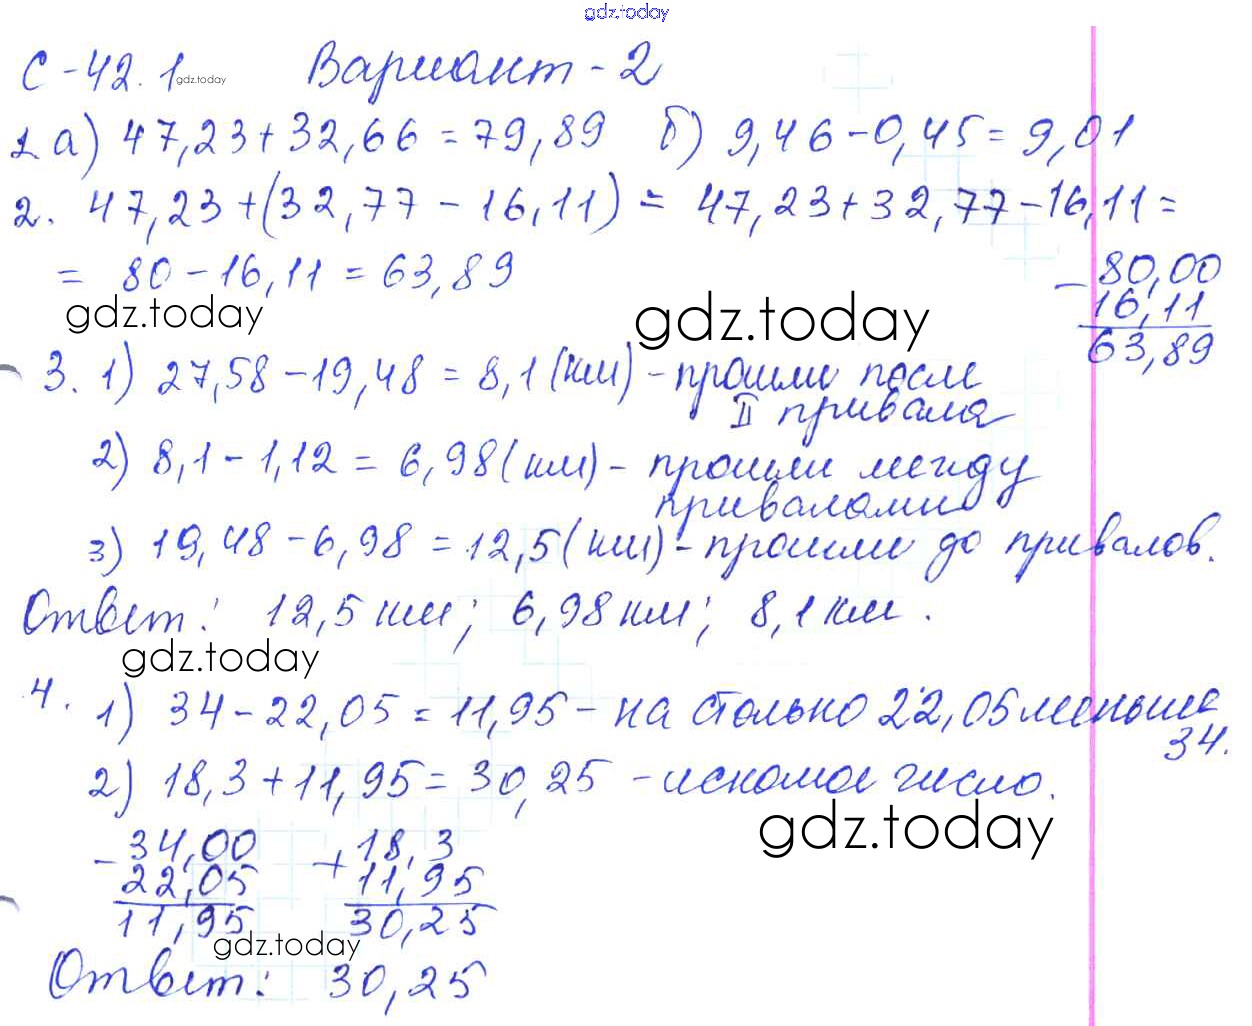 gdz.today
С-42.1 gdz.today Вариант-2
1. а) 47,23+32,66=79,89 б) 9,46-0,45=9,01
2. 47,23+(32,77-16,11)= 47,23+32,77-16,11=
= 80-16,11=63,89
-80,00
16,11
63,89
gdz.today gdz.today
3. 1) 27,58-19,48=8,1(км)-прошли после
II привала
2) 8,1-1,12=6,98(км)- прошли между
привалами
3) 19,48-6,98=12,5(км)-прошли до привалов.
Ответ: 12,5 км; 6,98 км; 8,1 км.
gdz.today
4. 1) 34-22,05=11,95-на столько 22,05 меньше
34.
2) 18,3+11,95=30,25 -искомое число.
gdz.today
-34,00 +18,3
22,05 11,95
11,95 30,25
gdz.today
Ответ: 30,25